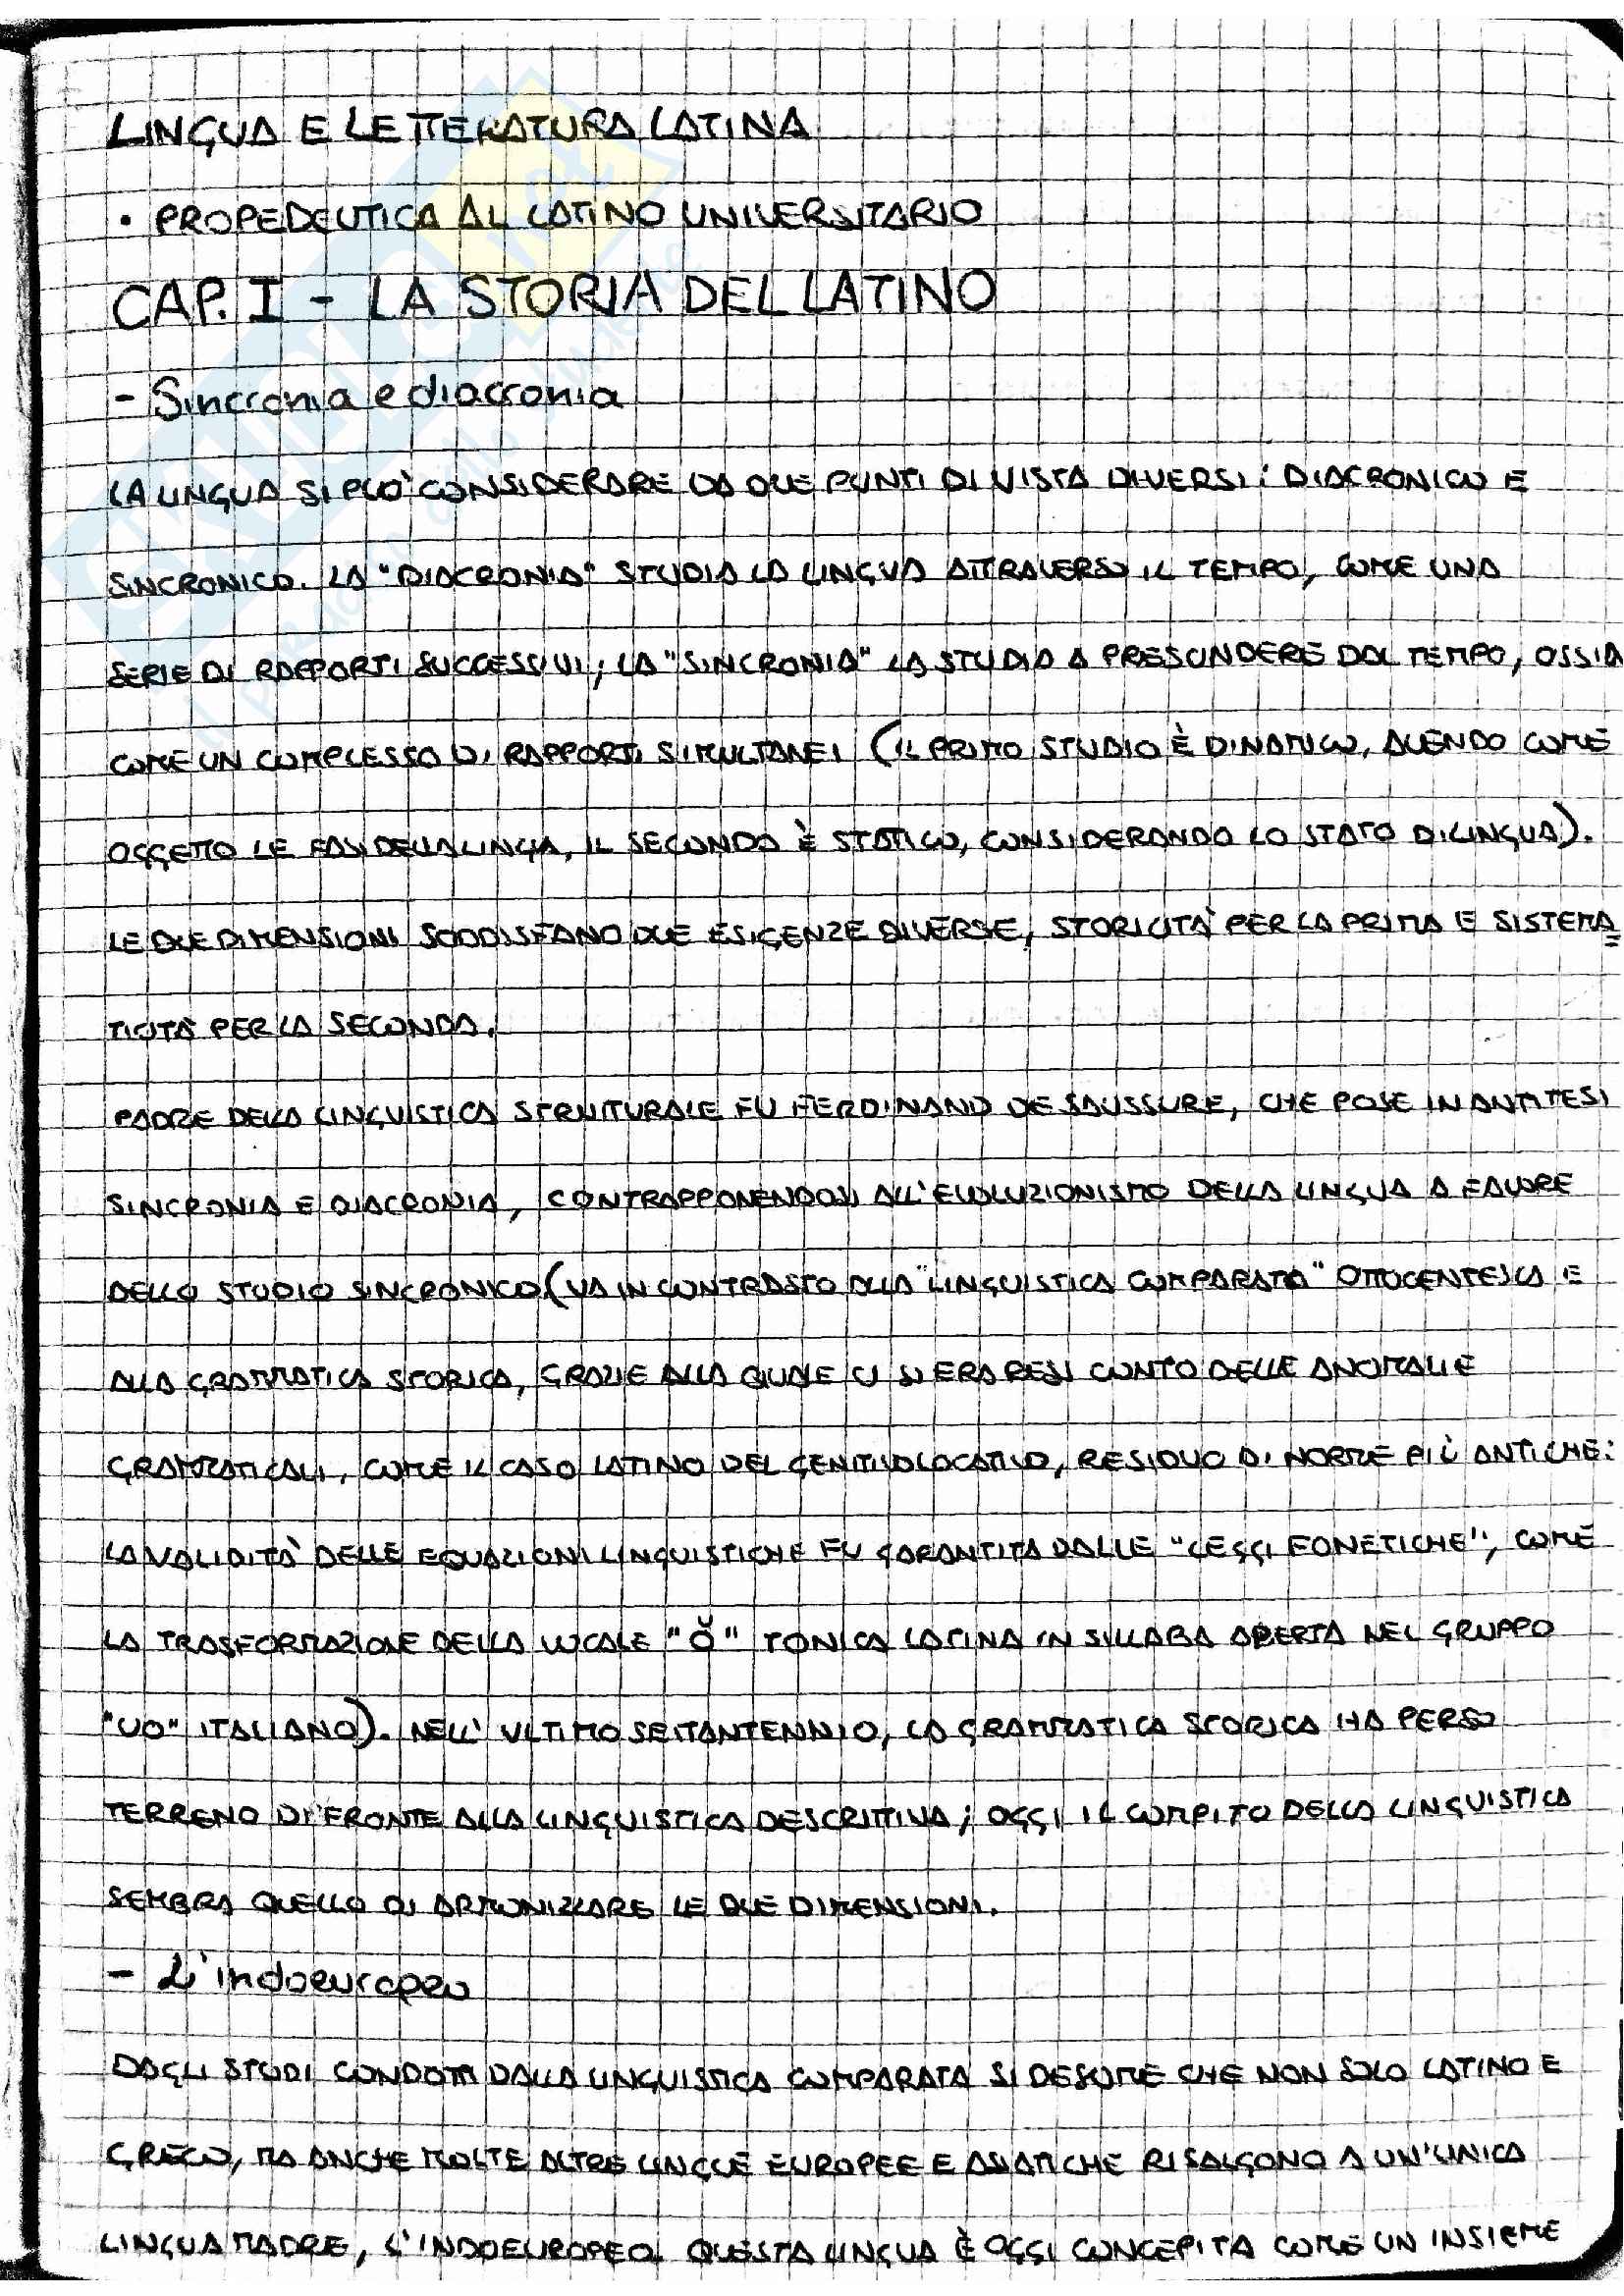 LINGUA E LETTERATURA LATINA
• PROPEDEUTICA AL LATINO UNIVERSITARIO
CAP. I - LA STORIA DEL LATINO
- Sincronia e diacronia
LA LINGUA SI PUO' CONSIDERARE DA DUE PUNTI DI VISTA DIVERSI: DIACRONICO E
SINCRONICO. LA "DIACRONIA" STUDIA LA LINGUA ATTRAVERSO IL TEMPO, COME UNA
SERIE DI RAPPORTI SUCCESSIVI; LA "SINCRONIA" LA STUDIA A PRESCINDERE DAL TEMPO, OSSIA
COME UN COMPLESSO DI RAPPORTI SIMULTANEI (IL PRIMO STUDIO È DINAMICO, AVENDO COME
OGGETTO LE FASI DELLA LINGUA, IL SECONDO È STATICO, CONSIDERANDO LO STATO DI LINGUA).
LE DUE DIMENSIONI SODDISFANO DUE ESIGENZE DIVERSE, STORICITA' PER LA PRIMA E SISTEMA=
TICITA' PER LA SECONDA.
PADRE DELLA LINGUISTICA STRUTTURALE FU FERDINAND DE SAUSSURE, CHE POSE IN ANTITESI
SINCRONIA E DIACRONIA, CONTRAPPONENDOSI ALL'EVOLUZIONISMO DELLA LINGUA A FAVORE
DELLO STUDIO SINCRONICO (VA IN CONTRASTO ALLA "LINGUISTICA COMPARATA" OTTOCENTESCA E
ALLA GRAMMATICA STORICA, GRAZIE ALLA QUALE CI SI ERA RESI CONTO DELLE ANOMALIE
GRAMMATICALI, COME IL CASO LATINO DEL GENITIVO LOCATIVO, RESIDUO DI NORME PIÙ ANTICHE:
LA VALIDITA' DELLE EQUAZIONI LINGUISTICHE FU GARANTITA DALLE "LEGGI FONETICHE", COME
LA TRASFORMAZIONE DELLA VOCALE "Ŏ" TONICA LATINA IN SILLABA APERTA NEL GRUPPO
"UO" ITALIANO). NELL'ULTIMO SETTANTENNIO, LA GRAMMATICA STORICA HA PERSO
TERRENO DI FRONTE ALLA LINGUISTICA DESCRITTIVA; OGGI IL COMPITO DELLA LINGUISTICA
SEMBRA QUELLO DI ARMONIZZARE LE DUE DIMENSIONI.
- L'indoeuropeo
DAGLI STUDI CONDOTTI DALLA LINGUISTICA COMPARATA SI DESUME CHE NON SOLO LATINO E
GRECO, MA ANCHE MOLTE ALTRE LINGUE EUROPEE E ASIATICHE RISALGONO A UN'UNICA
LINGUA MADRE, L'INDOEUROPEO. QUESTA LINGUA È OGGI CONCEPITA COME UN INSIEME